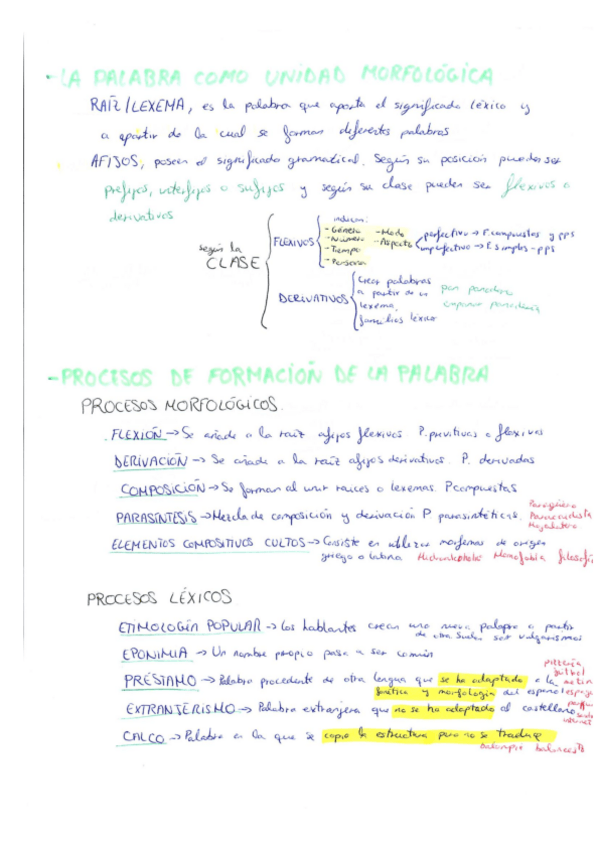 -LA PALABRA COMO UNIDAD MORFOLÓGICA
RAÍZ/LEXEMA, es la palabra que aporta el significado léxico y
a apartir de la cual se forman diferentes palabras
AFIJOS, poseen el significado gramatical. Según su posición pueden ser
prefijos, interfijos o sufijos y según su clase pueden ser flexivos o
derivativos
según la
CLASE
FLEXIVOS
indican:
-Género -Modo
-Número -Aspecto
-Tiempo
-Persona
perfectivo → F. compuestas y pps
imperfectivo → F. simples - pps
DERIVATIVOS
Crear palabras
a partir de un
lexema
familias léxico
pan panadero
panadería
-PROCESOS DE FORMACIÓN DE LA PALABRA
PROCESOS MORFOLÓGICOS.
FLEXIÓN → Se añade a la raíz afijos flexivos. P. primitivas o flexivas
DERIVACIÓN → Se añade a la raíz afijos derivativos. P. derivadas
COMPOSICIÓN → Se forman al unir raíces o lexemas. P compuestas
PARASÍNTESIS → Mezcla de composición y derivación P parasintéticas.
ELEMENTOS COMPOSITIVOS CULTOS → Consiste en utilizar morfemas de origen
griego o latino filosofía
PROCESOS LÉXICOS
ETIMOLOGÍA POPULAR → Los hablantes crean una nueva palabra a partir
de otra. Suelen ser vulgarismos
EPONIMIA → Un nombre propio pasa a ser común
PRÉSTAMO → Palabra procedente de otra lengua que se ha adaptado a la
fonética y morfología del español
pizzería
futbol
EXTRANJERISMO → Palabra extranjera que no se ha adaptado al castellano
internet
CALCO → Palabra en la que se copia la estructura pero no se traduce
balompié